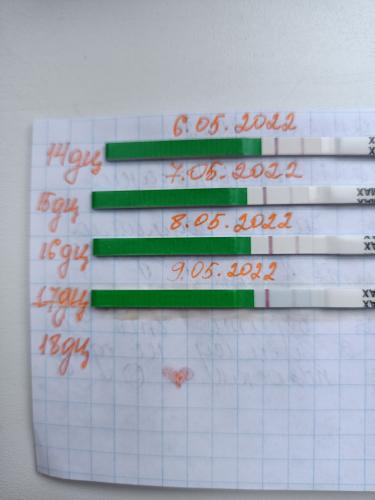 6.05.2022
14дц
7.05.2022
15дц
MAX
8.05.2022
16дц
9.05.2022
17дц
18дц